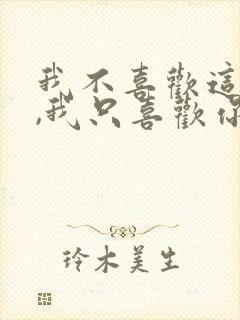 我不喜歡這
,我只喜歡你
玲木美生